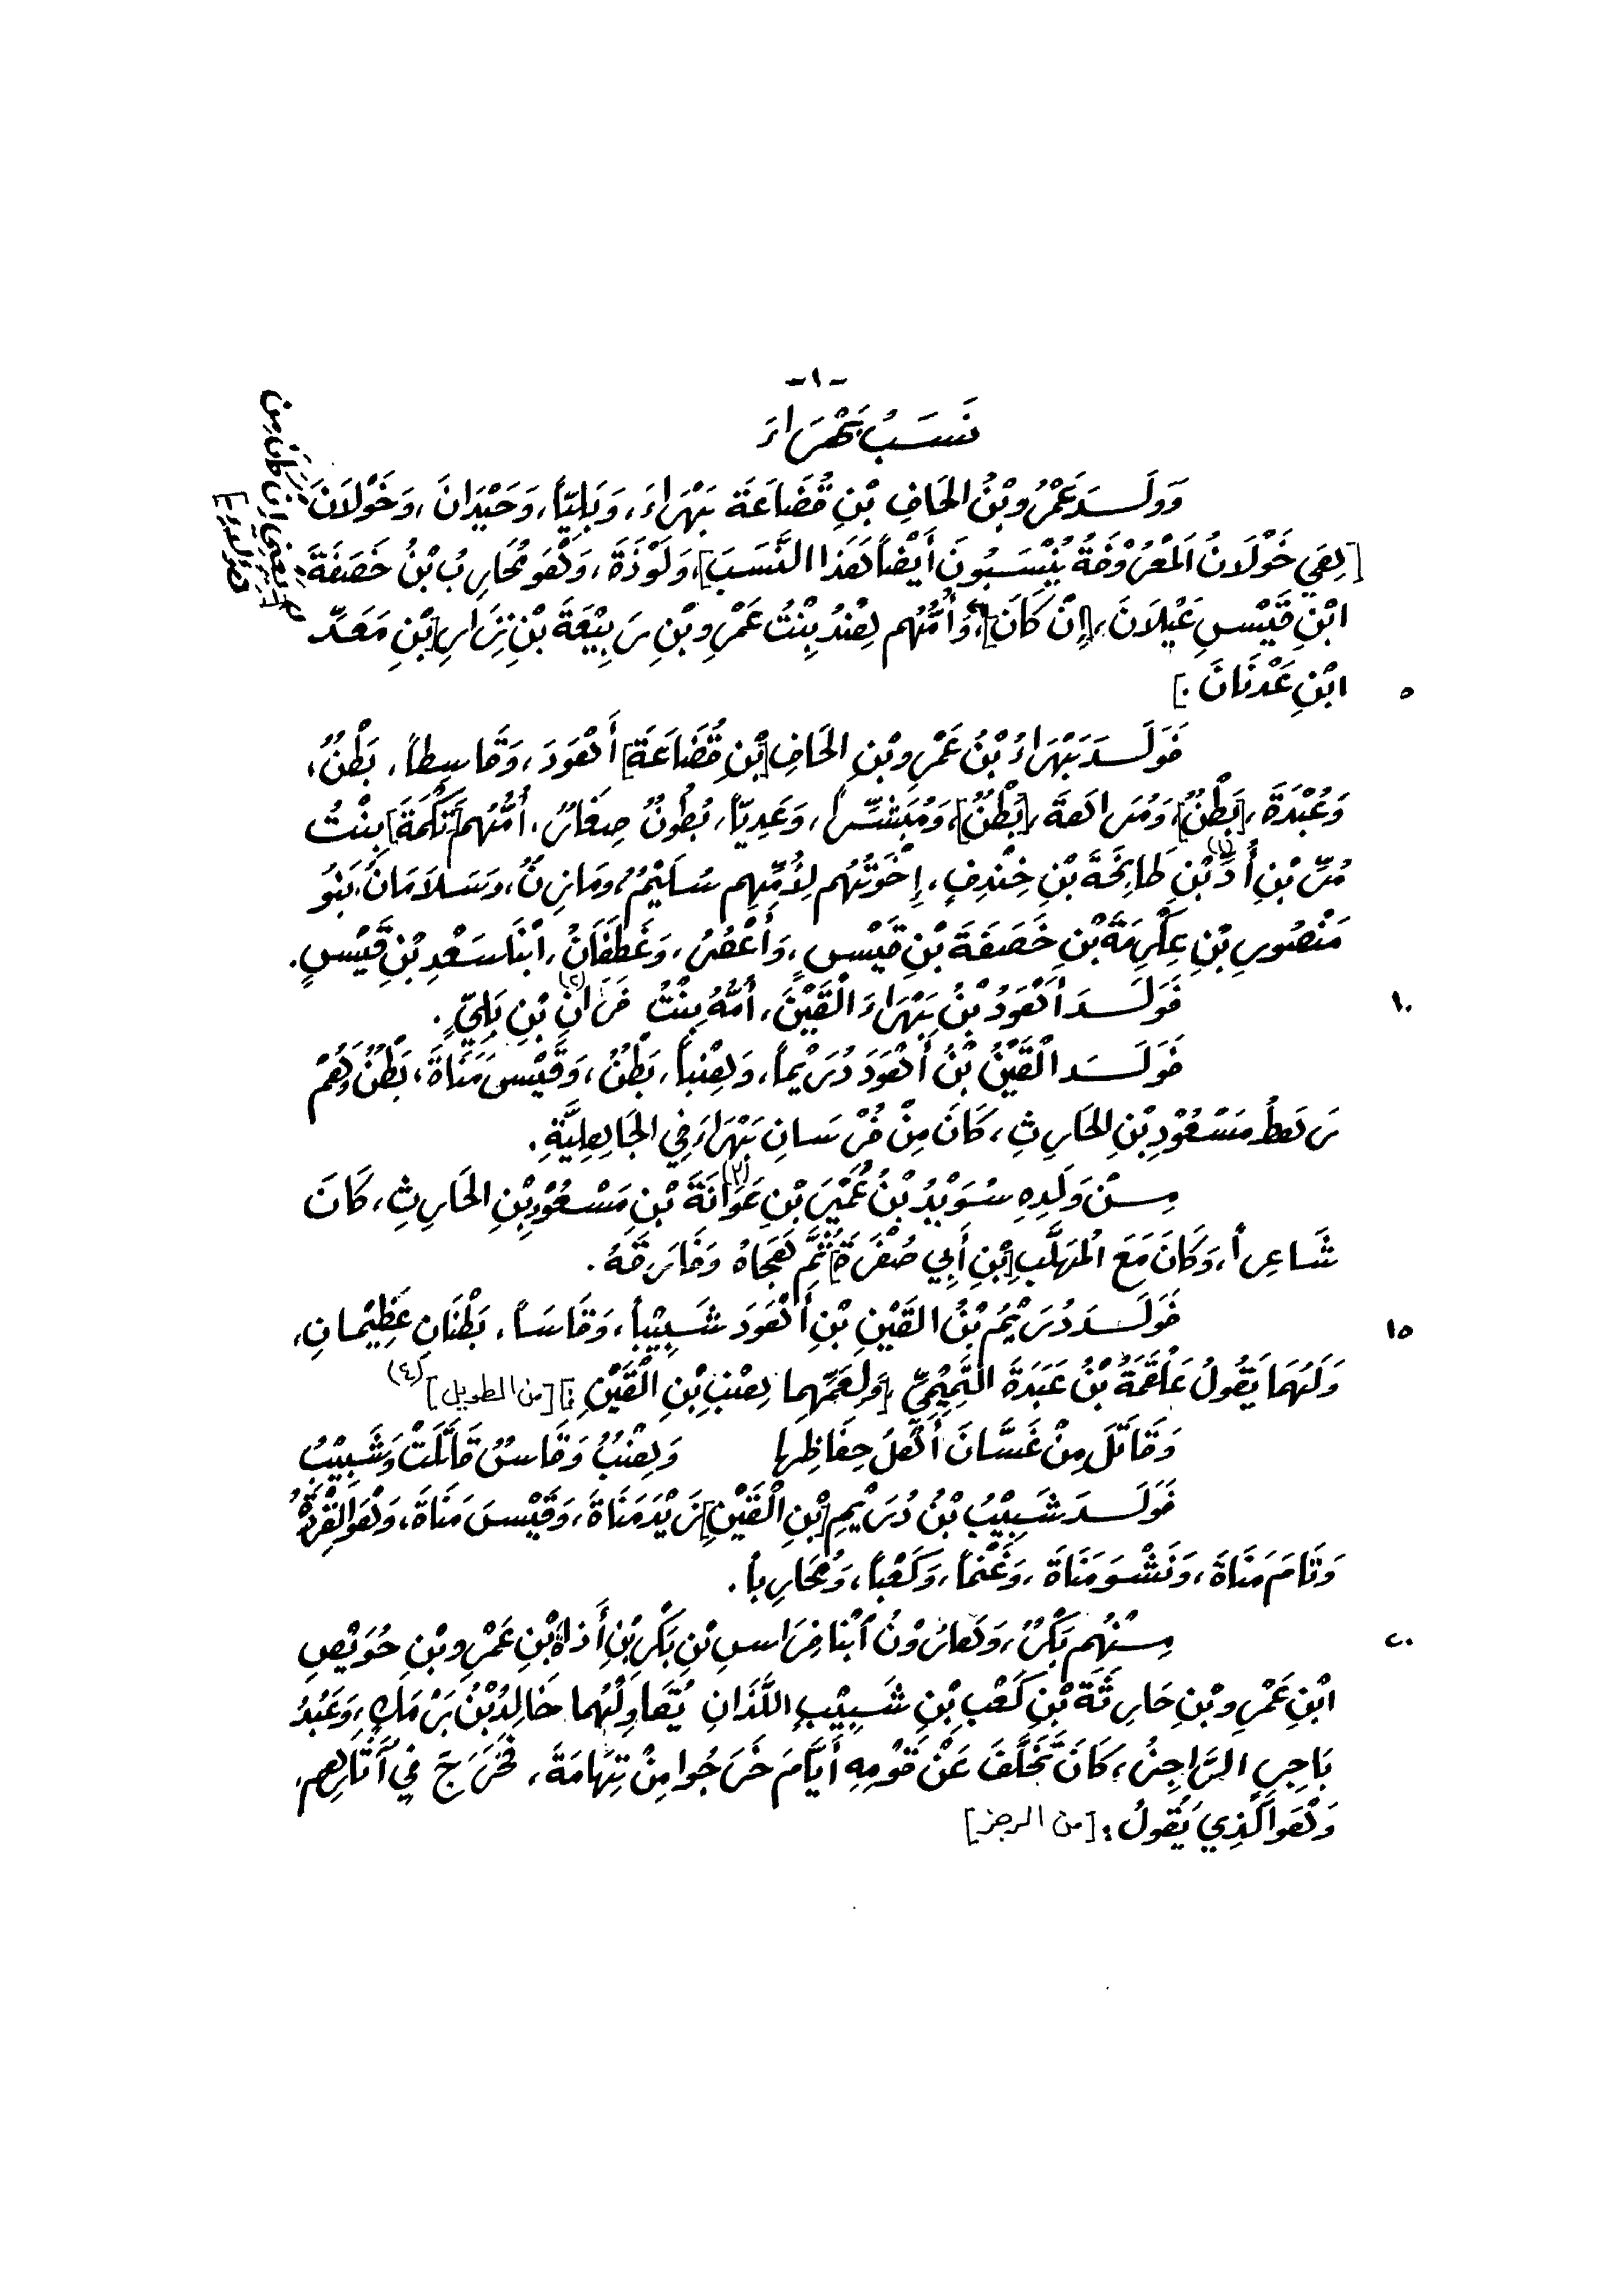 -١-
نَسَبُ بَهْرَاءَ
وَوَلَدَ عَمْرُو بْنُ الحَافِ بْنِ قُضَاعَةَ بَهْرَاءَ، وَبَلِيّاً، وَحَيْدَانَ، وَخَوْلَانَ
[هِيَ خَوْلَانُ المَعْرُوفَةُ يُنْسَبُونَ أَيْضاً هَذَا النَّسَبَ]، وَلَوْذَةَ، وَهُوَ مُحَارِبُ بْنُ خَصَفَةَ
ابْنِ قَيْسِ عَيْلَانَ، [إِنْ كَانَ]، وَأُمُّهُم هِنْدُ بِنْتُ عَمْرِو بْنِ رَبِيْعَةَ بْنِ نِزَارِ [بْنِ مَعَدِّ
ابْنِ عَدْنَانَ.]
٥
فَوَلَدَ بَهْرَاءُ بْنُ عَمْرِو بْنِ الحَافِ [بْنِ قُضَاعَةَ] أَهْوَدَ، وَقَاسِطاً، بَطْنٌ،
وَعُبْدَةَ، [بَطْنٌ]، وَمُرَاهَةَ، [بَطْنٌ]، وَمُبَشِّراً، وَعَدِيّاً، بُطُونٌ صِغَارٌ، أُمُّهُم [تَكْمَةُ] بِنْتُ
مُرِّ بْنِ أُدِّ (١) بْنِ طَابِخَةَ بْنِ خِنْدِفٍ، إِخْوَتُهُم لِأُمِّهِم سُلَيْمٌ، وَمَازِنٌ، وَسَلَامَانُ، بَنُو
مَنْصُورِ بْنِ عِكْرِمَةَ بْنِ خَصَفَةَ بْنِ قَيْسٍ، وَأَعْصُرُ، وَغَطَفَانُ، ابْنَا سَعْدِ بْنِ قَيْسٍ.
١٠ فَوَلَدَ أَهْوَدُ بْنُ بَهْرَاءَ الْقَيْنَ، أُمُّهُ بِنْتُ فَرَانِ (٢) بْنِ بَلِيٍّ.
فَوَلَدَ الْقَيْنُ بْنُ أَهْوَدَ دُرَيْماً، وَهِنْباً، بَطْنٌ، وَقَيْسَ مَنَاةَ، بَطْنٌ وَهُمْ
رَهْطُ مَسْعُوْدِ بْنِ الحَارِثِ، كَانَ مِنْ فُرْسَانِ بَهْرَاءَ فِي الجَاهِلِيَّةِ.
مِنْ وَلَدِهِ سُوَيْدُ بْنُ عُمَيْرِ بْنِ عَوَانَةَ (٣) بْنِ مَسْعُوْدِ بْنِ الحَارِثِ، كَانَ
شَاعِراً، وَكَانَ مَعَ الْمُهَلَّبِ [بْنِ أَبِي صُفْرَةَ] ثُمَّ هَجَاهُ وَفَارَقَهُ.
١٥ فَوَلَدَ دُرَيْمُ بْنُ القَيْنِ بْنِ أَهْوَدَ شَبِيْباً، وَقَاسَاً، بَطْنَانِ عَظِيْمَانِ،
وَلَهُمَا يَقُولُ عَلْقَمَةُ بْنُ عَبَدَةَ التَّمِيْمِيِّ [وَلِعَمِّهِمَا هِنْبِ بْنِ الْقَيْنِ:] [من الطويل] (٤)
وَقَاتَلَ مِنْ غَسَّانَ أَهْلَ حِفَاظِهَا وَهِنْبٌ وَقَاسٌ قَاتَلَتْ وَشَبِيْبُ
فَوَلَدَ شَبِيْبُ بْنُ دُرَيْمِ [بْنِ الْقَيْنِ] زَيْدَ مَنَاةَ، وَقَيْسَ مَنَاةَ، وَهُوَ الفِزْرُ
وَتَامَ مَنَاةَ، وَنَشْوَ مَنَاةَ، وَغَنْماً، وَكَعْباً، وَمُحَارِباً.
٢٠ مِنْهُم بَكْرٌ، وَهَارُوْنُ ابْنَا فِرَاسِ بْنِ بَكْرِ بْنِ أَذَاةَ بْنِ عَمْرِو بْنِ حُوَيْصِ
ابْنِ عَمْرِو بْنِ حَارِثَةَ بْنِ كَعْبِ بْنِ شَبِيْبٍ اللَّذَانِ خَالِدُ بْنُ بَرْمَكٍ، وَعَبْدُ
بَاجِرٍ الرَّاجِزُ، كَانَ تَخَلَّفَ عَنْ قَوْمِهِ أَيَّامَ خَرَجُوا مِنْ تِهَامَةَ، فَخَرَجَ فِي آثَارِهِم،
وَهُوَ الَّذِي يَقُولُ: [من الرجز]